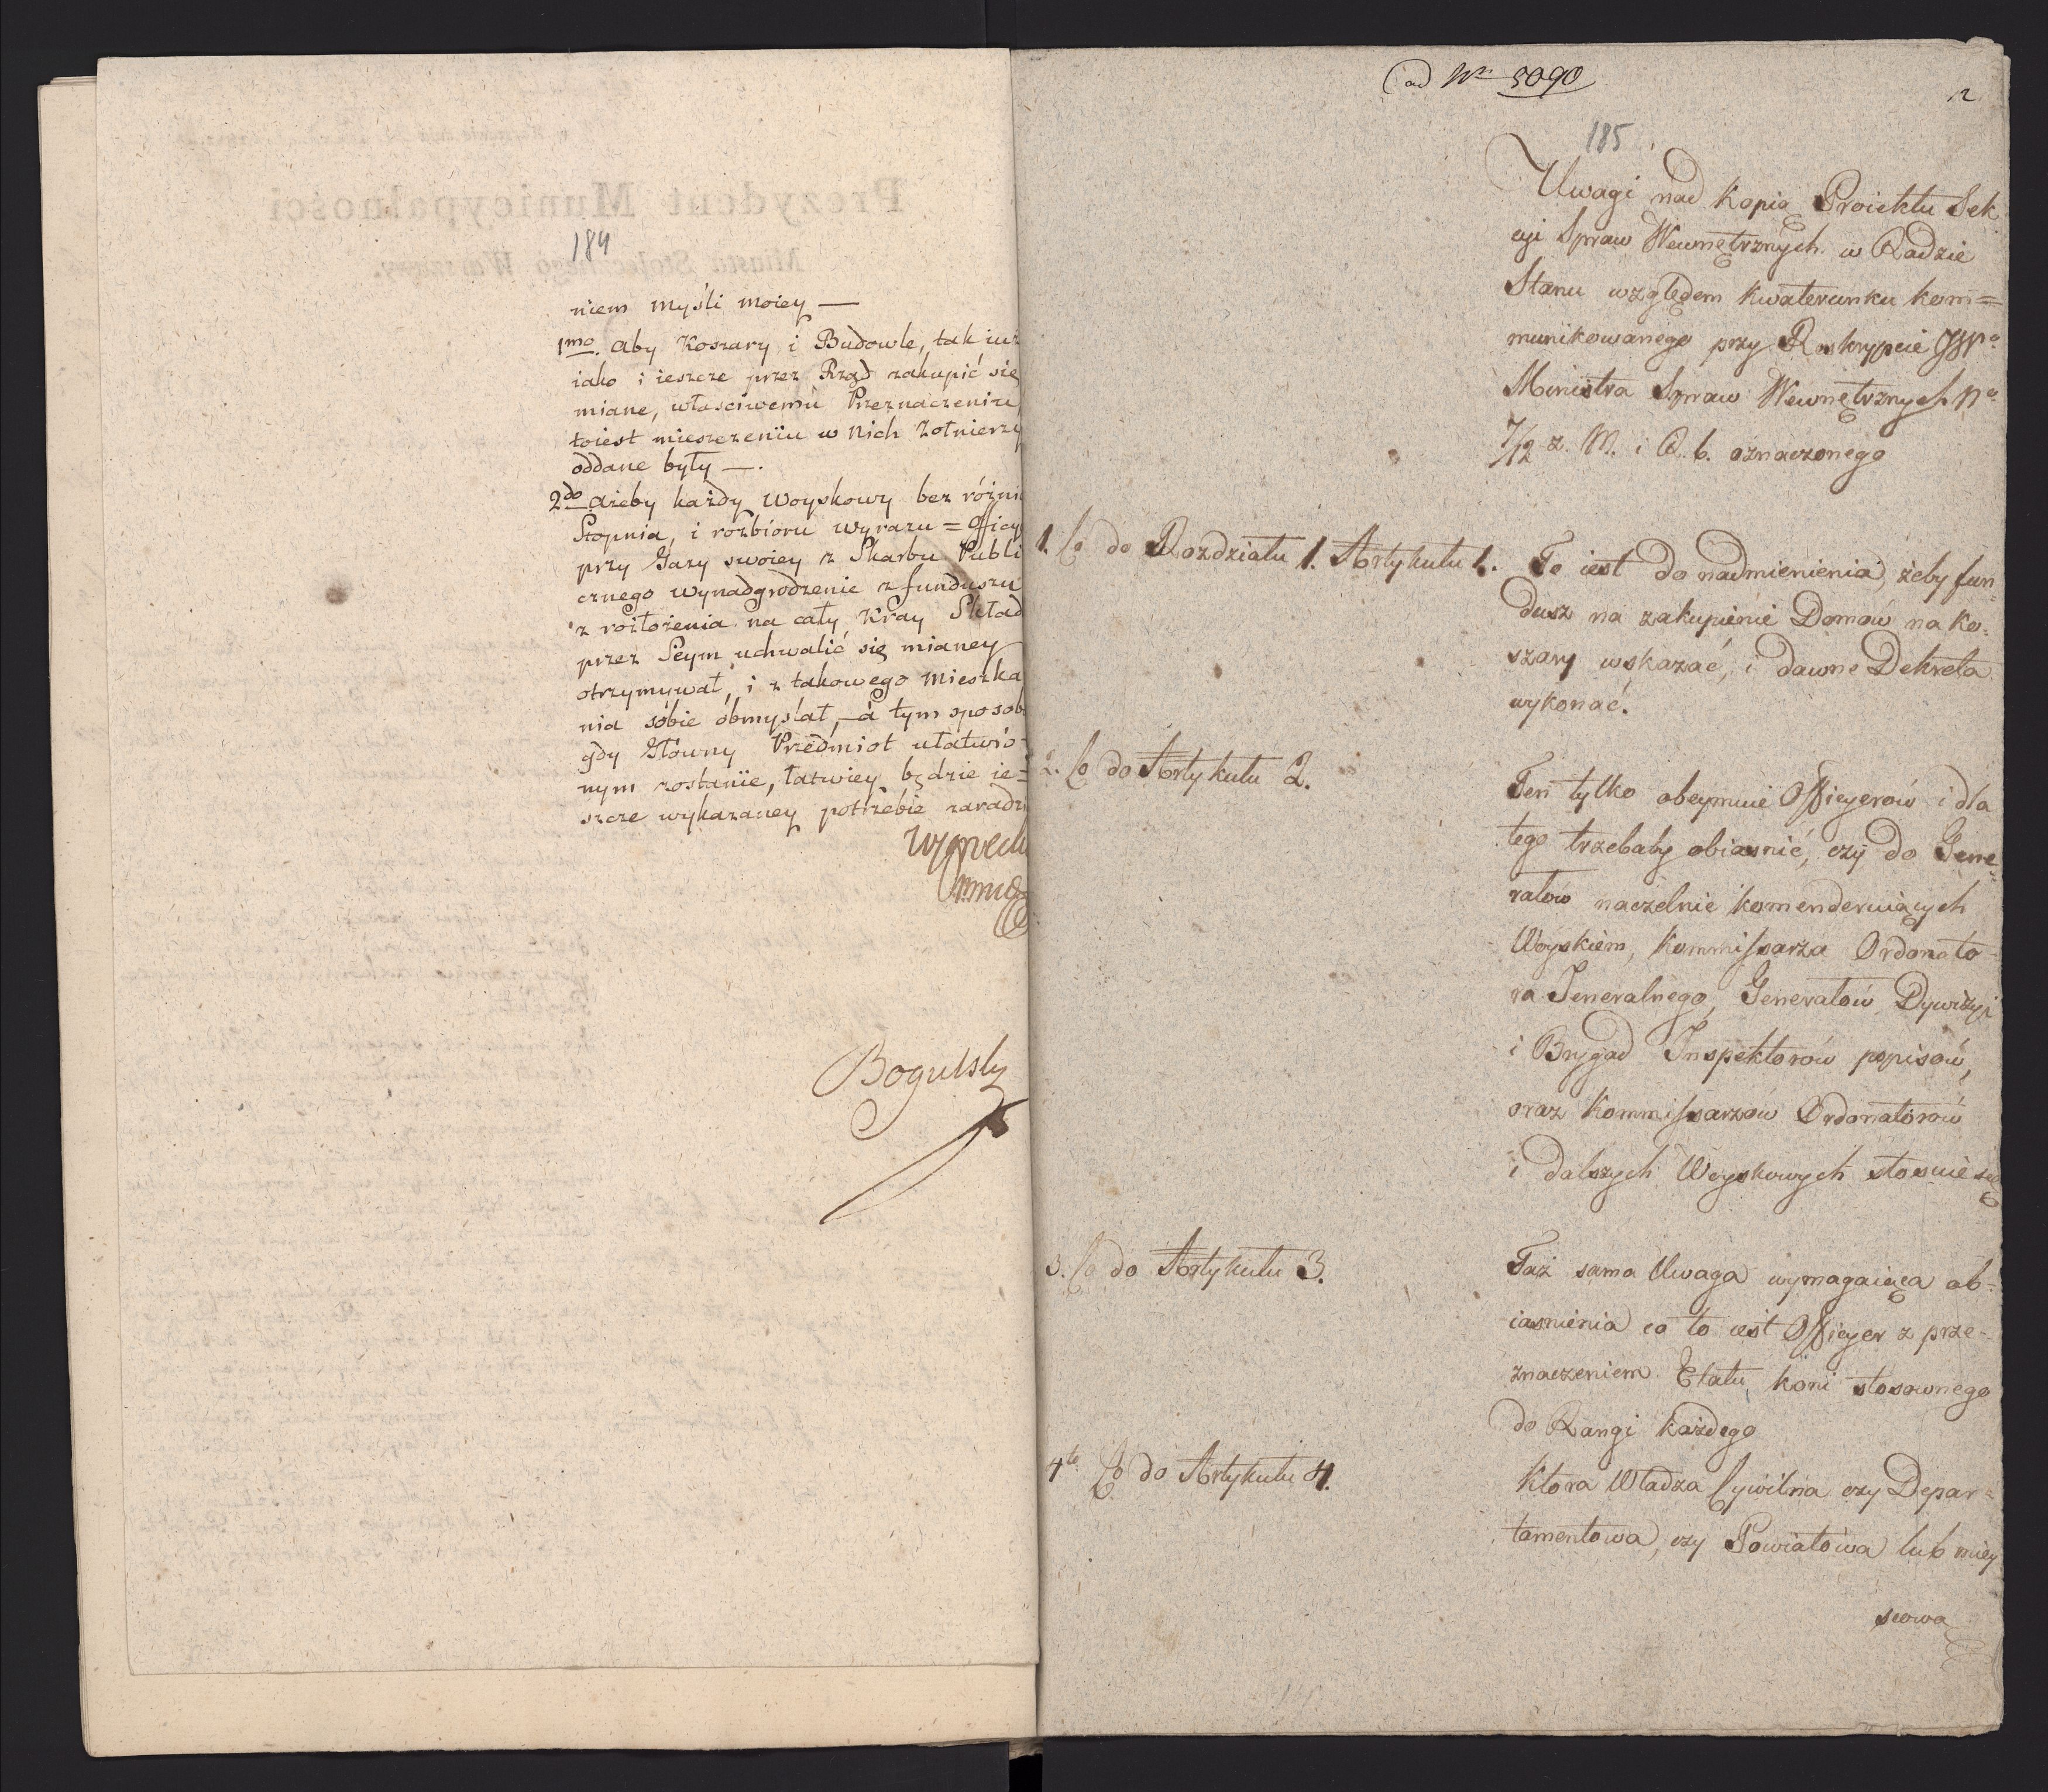 184
niem myśli moiey —
1mo. aby Koszary i Budowle, tak iuż
iako i ieszcze przez Rząd zakupić się
miane, właściwemu Przeznaczeniu
toiest mieszczeniu w nich Zołnierzy
oddane były —.
2do ażeby każdy Woyskowy bez różni
Stopnia, i rozbioru wyrazu = Officy
przy Gazy swoiey z Skarbu Publi
cznego wynadgrodzenie z funduszu
z rozłożenia na cały Kray Skład
przez Seym uchwalić się mianey
otrzymywał, i z takowego mieszka
nia sobie obmyślał, — a tym sposob
gdy Główny Przedmiot ułatwio-
nym zostanie, łatwiey będzie ie=
szcze wykazaney potrzebie zaradzi
Bogulsky
ad Nr 5090
12
185
Uwagi nad Kopią Proiektu Sek
cyi Spraw Wewnętrznych w Radzie
Stanu względem Kwaterunku kom=
munikowanego przy Reskrypcie JWo
Ministra Spraw Wewnętrznych No
7/12 z. M. i R. b. oznaczonego
1. Co do Rozdziału 1. Artykułu 1.
To iest do nadmienienia, żeby fun-
dusz na zakupienie Domów na Ko-
szary wskazać, i dawne Dekreta
wykonać.
2. Co do Artykułu 2.
Ten tylko obeymuie Officyerów i dla
tego trzebaby obiasnić, czy do Gene-
rałów naczelnie komenderuiących
Woyskiem, Kommissarza Ordonato-
ra Jeneralnego, Generałow Dywizyi
i Brygad Inspektorów popisów,
oraz Kommissarzow Ordonatorow
i dalszych Woyskowych stosuie się
3. Co do Artykułu 3.
Taż sama Uwaga wymagaiąca ob-
iasnienia co to iest Officyer z prze-
znaczeniem Etatu koni stosownego
do Rangi każdego
4to Co do Artykułu 4.
Ktora Władza Cywilna czy Depar=
tamentowa, czy Powiatowa lub miey
scowa